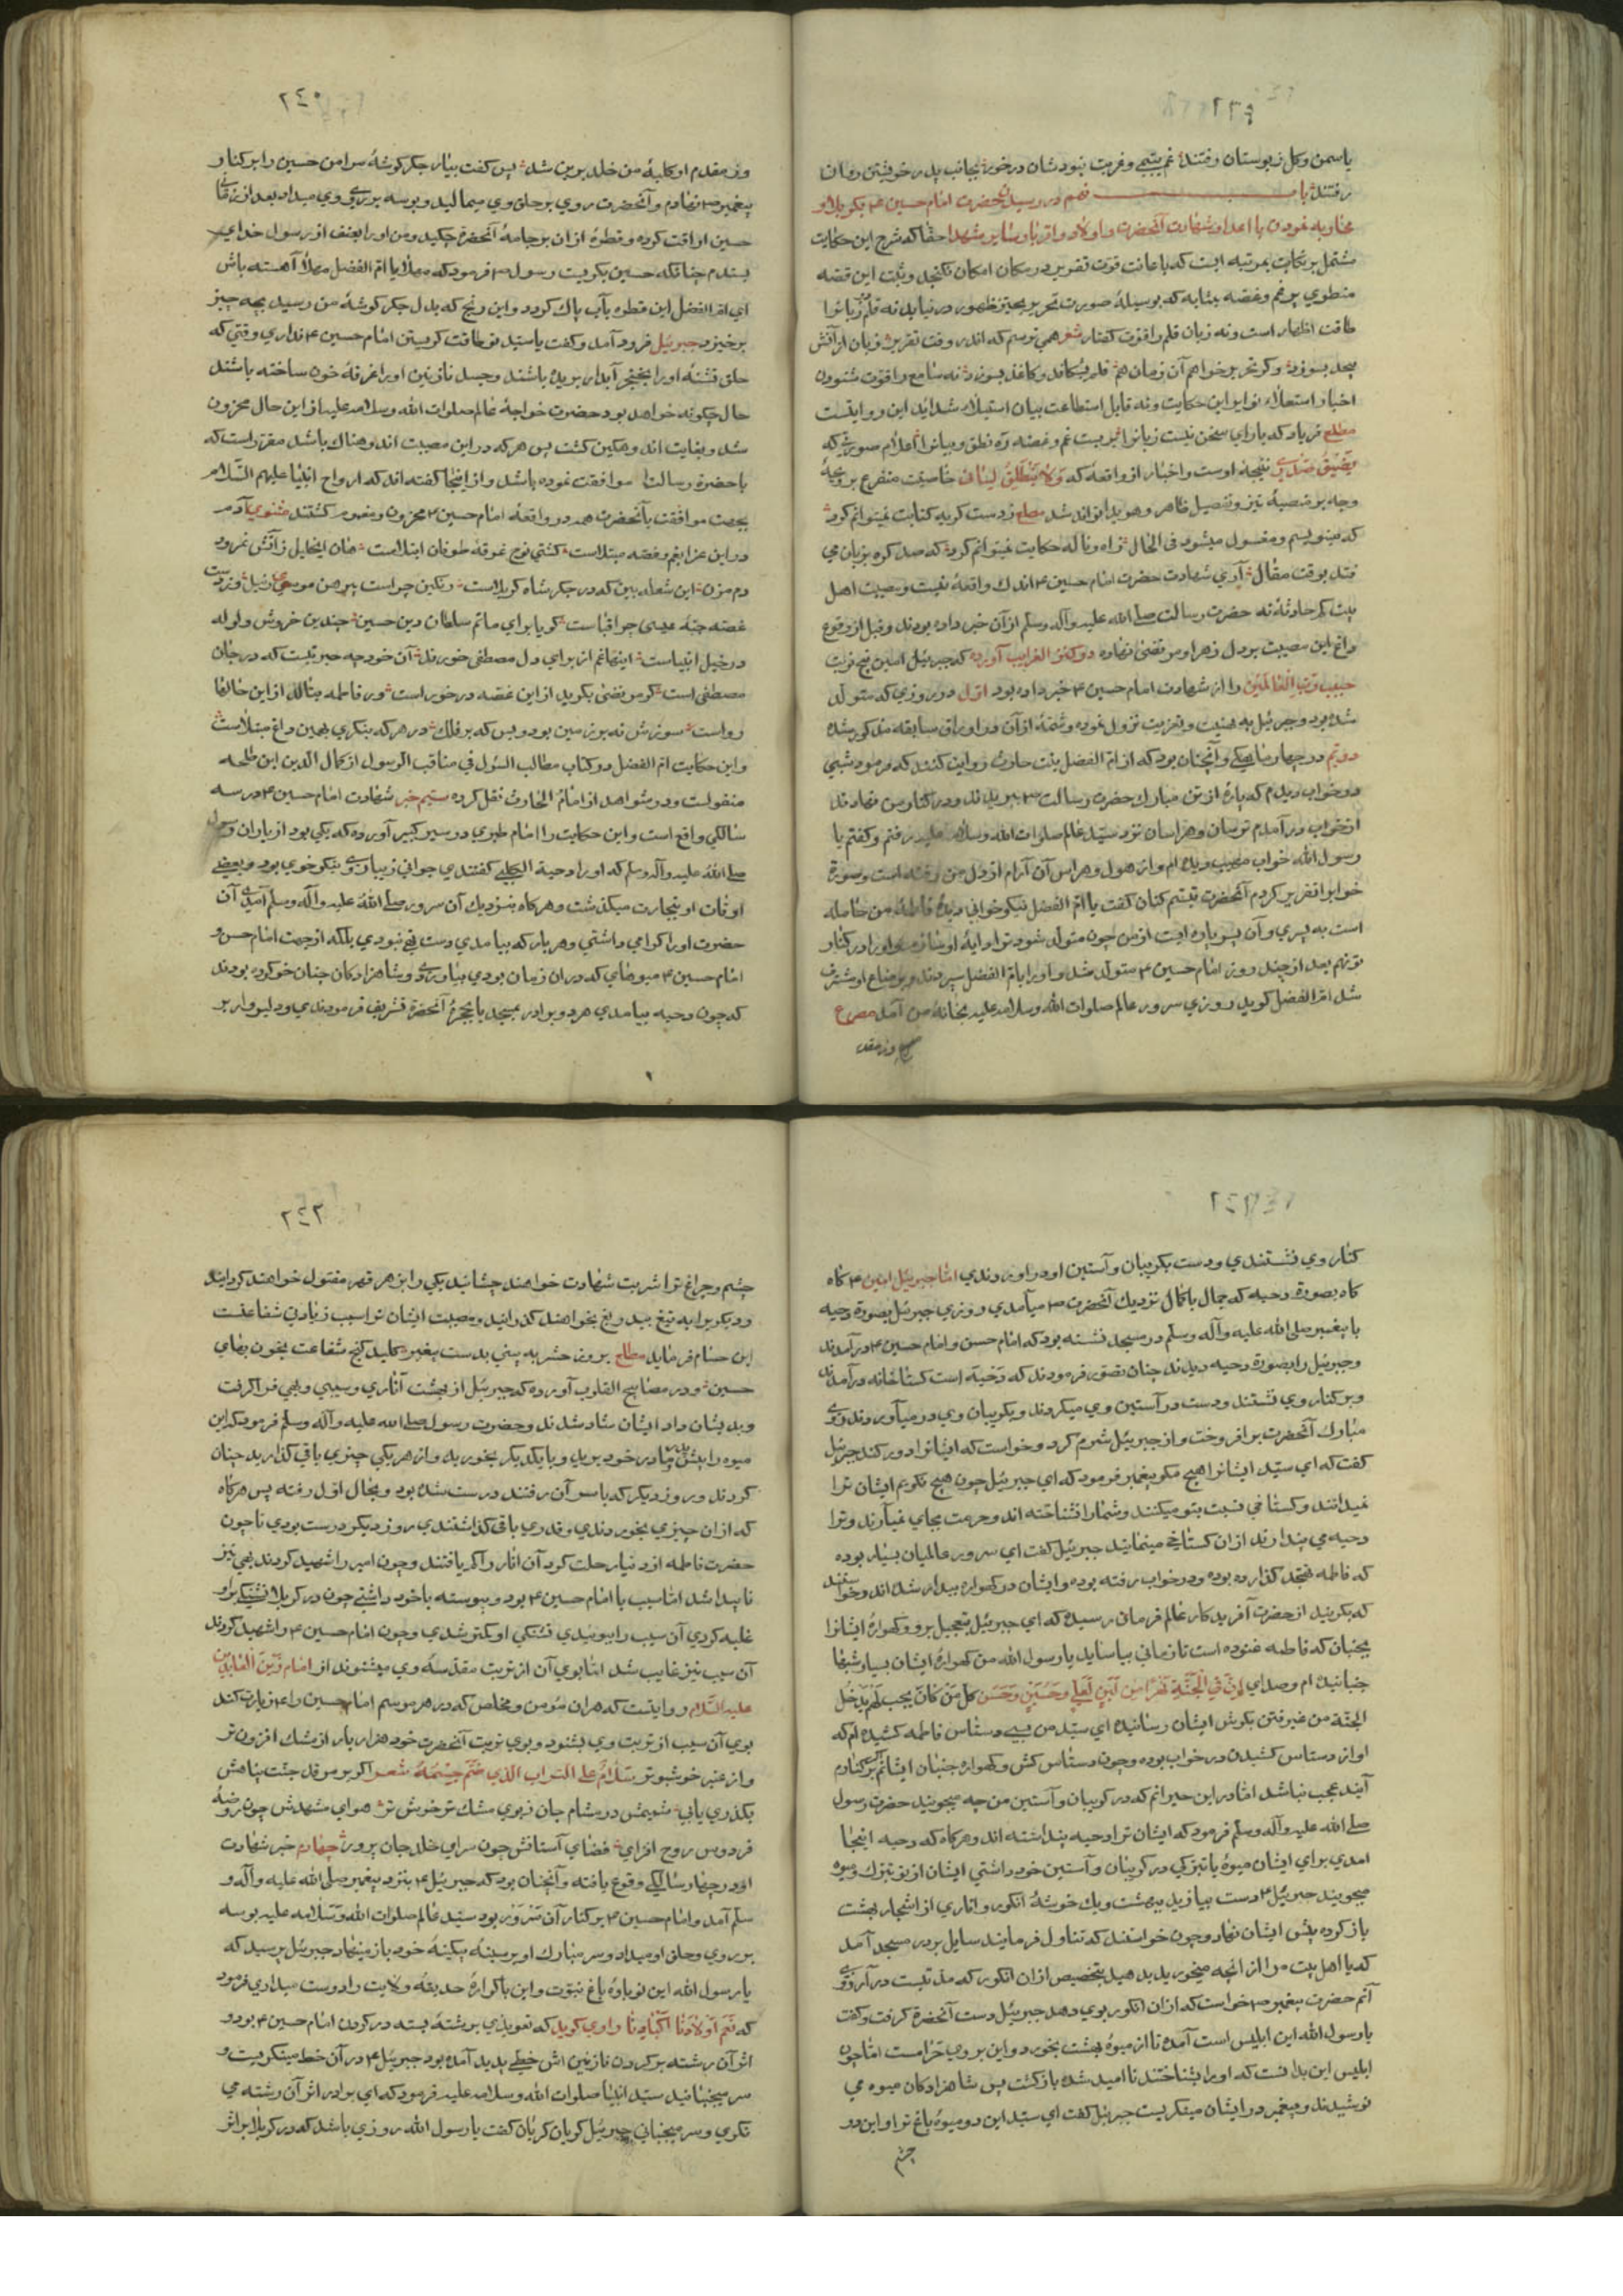 ٢٣٩
یاسمن وکل ز بوستان رفتند غم یتیمی وغربت نبود شان درخور بجانب پدر خویشتن روان
رفتند باب نهم در رسیدن حضرت امام حسین ع بکربلا و
محاربه نمودن با اعدا و شهادت آنحضرت و اولاد و اقربا و سایر شهدا حقا که شرح این حکایت
مشتمل بر نکایت بمرتبه ایست که باعانت قوت تقریر در مکان امکان نکنجد و ثبت این قصه
منطوی بر غم وغصه بمثابه که بوسیلهٔ صورت تحریر بحیز ظهور در نیاید نه قلم زبانرا
طاقت اظهار است ونه زبان قلم را قوت کفتار شعر همی ترسم که اندر وقت تقریر زبان از آتش
بیحد بسوزد وکر تحریر خواهم آن زمان هم قلم بشکافد وکاغذ بسوزد نه سامع را قوت شنودن
اخبار استعلاء نوایر این حکایت ونه قایل استطاعت بیان استیلاء شداید این روایتست
مطلع فریاد که یارای سخن نیست زبانرا بربست غم وغصه ره نطق وبیانرا اعلام صورتی که
یضیق صدری نتیجهٔ اوست واخبار از واقعهٔ که ولا ینطلق لسانی خاصیت متفرع بر وی بچهٔ
وجه بر منصهٔ تبیز وتفصیل ظاهر وهویدا تواند شد مطلع ز دست کریه کتابت نمیتوانم کرد
که مینویسم ومغسول میشود فی الحال ز آه وناله حکایت نمیتوانم کرد که صد کره بزبان می
فتد بوقت مقال آری شهادت حضرت امام حسین ع اندك واقعهٔ نیست ومصیبت اهل
بیت کم حادثهٔ نه حضرت رسالت صلی الله علیه وآله وسلم از آن خبر داده بودند وقبل از وقوع
داغ این مصیبت بر دل زهرا ومرتضی نهاده در کنز الغرایب آورده که جبرئیل امین پنج نوبت
حبیب رب العالمین را از شهادت امام حسین ع خبر داده بود اول در روزی که متولد
شده بود وجبرئیل به تهنیت وتعزیت نزول نموده وشمهٔ از آن در اوراق سابقه مذکور شده
دویم در چهار ماهکی وآنچنان بود که از ام الفضل بنت حارث روایت کنند که فرمود شبی
در خواب دیدم که پارهٔ از تن مبارك حضرت رسالت ص ببریدند ودر کنار من نهادند
از خواب در آمدم ترسان وهراسان نزد سید عالم صلوات الله وسلامه علیه رفتم وکفتم یا
رسول الله خواب مهیب دیده ام واز هول وهراس آن آرام از دل من رفته است وصورة
خواب را تقریر کردم آنحضرت تبسم کنان کفت یا ام الفضل نیکو خوابی دیدهٔ فاطمهٔ من حامله
است به پسری وآن پسر پاره ایست از من چون متولد شود ترا دایهٔ او سازم واو را در کنار
تو نهم بعد از چند روز امام حسین ع متولد شد واو را بام الفضل سپردند وبرضاع او مشرف
شد ام الفضل کوید روزی سرور عالم صلوات الله وسلامه علیه بخانهٔ من آمد مصرع
وز مقد
٢٤٠
وز مقدم او کلبهٔ من خلد برین شد پس کفت بیار جکر کوشهٔ مرا من حسین را بر کنار
پیغمبر ص نهادم وآنحضرت روی بر حلق وی میمالید وبوسه بر روی وی میداد بعد از زمانی
حسین اراقت کرده وقطرهٔ از ان بر جامهٔ آنحضرة چکید ومن او را بعنف از رسول خدای
بستدم چنانکه حسین بکریست رسول ص فرمود که مهلا یا ام الفضل مهلا آهسته باش
ای ام الفضل این قطره بآب پاك کردد واین رنج که بدل جکر کوشهٔ من رسید بچه چیز
برخیزد جبرئیل فرود آمد وکفت یا سید تو طاقت کریستن امام حسین ع نداری وقتی که
حلق تشنهٔ او را بخنجر آبدار بریده باشند وجسد نازنین او را غرقهٔ خون ساخته باشند
حال چکونه خواهد بود حضرت خواجهٔ عالم صلوات الله وسلامه علیه از این حال محزون
شد وبغایت اندوهکین کشت پس هر که در این مصیبت اندوهناك باشد مقرر است که
با حضرة رسالت موافقت نموده باشد واز اینجا کفته اند که ارواح انبیا علیهم السلام
بجهت موافقت بآنحضرت همه در واقعهٔ امام حسین ع محزون ومغموم کشتند مثنوی آدم
در این عزا بغم وغصه مبتلاست کشتی نوح غرقهٔ طوفان ابتلاست هان ایخلیل ز آتش نمرود
دم مزن این شعله بین که در جکر شاه کربلاست رنکین چراست پیرهن موسی ز نیل وز دست
غصه جبهٔ عیسی چرا قباست کویا برای ماتم سلطان دین حسین چندین خروش ولوله
در خیل انبیاست اینها غم از برای دل مصطفی خورند آن خود چه حیرتیست که در جان
مصطفی است کر مرتضی بکرید از این غصه در خور است ور فاطمه بنالد از این حالها
رواست سوزش نه بر زمین بود وبس که بر فلك در هر که بنکری بهمین داغ مبتلاست
واین حکایت ام الفضل در کتاب مطالب السئول فی مناقب الرسول از کمال الدین ابن طلحه
منقولست ودر شواهد از امامة الحارث نقل کرده سیم خبر شهادت امام حسین ع در سه
سالکی واقع است واین حکایت را امام طبری در سیر کبیر آورده که یکی بود از یاران رسول
صلی الله علیه وآله وسلم که او را دحیة الکلبی کفتندی جوانی زیبا روی ونیکو خوی بود وبعضی
اوقات او بتجارت میکذشت وهر کاه بنزدیك آن سرور صلی الله علیه وآله وسلم آمدی آن
حضرت او را کرامی داشتی وهر بار که بیامدی دست تهی نبودی بلکه از جهت امام حسن و
امام حسین ع میوهای که در ان زمان بودی بیاوردی وشاهزادکان چنان خو کرده بودند
که چون دحیه بیامدی هر دو برادر بمسجد یا بحجرهٔ آنحضرة تشریف فرمودندی ودلیروار بر
٢٤١
کنار وی نشستندی ودست بکریبان وآستین او در آوردندی اما جبرئیل امین ع کاه
کاه بصورة دحیه که جمال با کمال نزدیك آنحضرت ص میآمدی روزی جبرئیل بصورة دحیه
با پیغمبر صلی الله علیه وآله وسلم در مسجد نشسته بود که امام حسن وامام حسین ع در آمدند
وجبرئیل را بصورة دحیه دیدند چنان تصور فرمودند که دحیه است کستاخانه در آمدند
وبر کنار وی نشستند ودست در آستین وی میکردند وبکریبان وی در میآوردند روی
مبارك آنحضرت بر افروخت واز جبرئیل شرم کرد وخواست که ایشانرا دور کند جبرئیل
کفت که ای سید ایشانرا هیچ مکو پیغمبر فرمود که ای جبرئیل چون هیچ نکویم ایشان ترا
نمیدانند وکستاخی نسبت بتو میکنند وشما را نشناخته اند وحرمت بجای نمیآرند وترا
دحیه می پندارند از ان کستاخی مینمایند جبرئیل کفت ای سرور عالمیان بسیار بوده
که فاطمه تهجد کذارده بوده ودر خواب رفته بوده وایشان در کهواره بیدار شده اند وخواستند
که بکریند از حضرت آفریدکار عالم فرمان رسیده که ای جبرئیل بتعجیل برو وکهوارهٔ ایشانرا
بجنبان که فاطمه غنوده است تا زمانی بیاساید یا رسول الله من کهوارهٔ ایشان بسیار شبها
جنبانیده ام وصدای ان فی الجنة نهرا من لبن لعلی وحسین وحسن کل من کان یحب لهم یدخل
الجنة من غیر فتن بکوش ایشان رسانیده ای سید من بسی دستاس فاطمه کشیده ام که
او از دستاس کشیدن در خواب بوده وچون دستاس کش وکهواره جنبان ایشانم اکر بر کنارم
آیند عجب نباشد اما در این حیرانم که در کریبان وآستین من چه میجویند حضرت رسول
صلی الله علیه وآله وسلم فرمود که ایشان ترا دحیه پنداشته اند وهر کاه که دحیه اینجا
امدی برای ایشان میوهٔ یا تبرکی در کریبان وآستین خود داشتی ایشان از تو تبرك ومیوه
میجویند جبرئیل ع دست بیازید ببهشت ویك خوشهٔ انکور واناری از اشجار بهشت
باز کرده پیش ایشان نهاد وچون خواستند که تناول فرمایند سایل بر در مسجد آمد
که یا اهل بیت مرا از انچه میخورید بدهید بتخصیص از ان انکور که مدتیست در آرزوی
آنم حضرت پیغمبر ص خواست که از ان انکور بوی دهد جبرئیل دست آنحضرة کرفت وکفت
یا رسول الله این ابلیس است آمده تا از میوهٔ بهشت بخورد واین بر وی حرامست اما چون
ابلیس این بدانست که او را شناختند نا امید شده باز کشت پس شاهزادکان میوه می
نوشیدند وپیغمبر در ایشان مینکریست جبرئیل کفت ای سید این دو میوهٔ باغ ترا واین دو
چشم
٢٤٢
چشم وچراغ ترا شربت شهادت خواهند چشانید یکی را بزهر قهر مقتول خواهند کردانید
ودیکریرا به تیغ بیدریغ بخواهند کذرانید ومصیبت ایشان ترا سبب زیادتی شفاعتست
ابن حسام فرماید مطلع بروز حشر به بینی بدست پیغمبر کلید کنج شفاعت بخون بهای
حسین ودر مصابیح القلوب آورده که جبرئیل از بهشت اناری وسیبی وبهی فرا کرفت
وبدیشان داد ایشان شاد شدند وحضرت رسول صلی الله علیه وآله وسلم فرمود که این
میوه را پیش پدر ومادر خود برید وبا یکدیکر بخورید واز هر یکی چیزی باقی کذارید چنان
کردند وروز دیکر که باسر آن رفتند درست شده بود وبحال اول رفته پس هر کاه
که از ان چیزی بخوردندی وقدری باقی کذاشتندی روز دیکر درست بودی تا چون
حضرت فاطمه از دنیا رحلت کرد آن انار را کم یافتند وچون امیر را شهید کردند بهی نیز
ناپیدا شد اما سیب با امام حسین ع بود وپیوسته با خود داشتی چون در کربلا تشنکی بر او
غلبه کردی آن سیب را ببوئیدی تشنکی او کمتر شدی وچون امام حسین ع را شهید کردند
آن سیب نیز غایب شد اما بوی آن از تربت مقدسهٔ وی میشنوند از امام زین العابدین
علیه السلام روایتست که هر ان مؤمن ومخلص که در هر موسم امام حسین را ع زیارت کند
بوی آن سیب از تربت وی بشنود وبوی تربت آنحضرت خود هزار بار از مشك افزون تر
واز عنبر خوشبو تر سلام علی التراب الذی ضم جسمه شعر اکر بر مرقد جنت پناهش
بکذری یابی شمیمش در مشام جان ز بوی مشك تر خوش تر هوای مشهدش چون روضهٔ
فردوس روح افزای فضای آستانش چون سرای خلد جان پرور چهارم خبر شهادت
او در چهار سالکی وقوع یافته وآنچنان بود که جبرئیل ع بنزد پیغمبر صلی الله علیه وآله و
سلم آمد وامام حسین ع بر کنار آن سرور بود سید عالم صلوات الله وسلامه علیه بوسه
بر روی وحلق او میداد وسر مبارك او بر سینهٔ بیکینهٔ خود باز مینهاد جبرئیل پرسید که
یا رسول الله این نوباوهٔ باغ نبوت واین باکورهٔ حدیقهٔ ولایت را دوست میداری فرمود
که نعم اولادنا اکبادنا راوی کوید که تعویذی بر رشتهٔ بسته در کردن امام حسین ع بود و
اثر آن رشته بر کردن نازنین اش خطی پدید آمده بود جبرئیل ع در آن خط مینکریست و
سر میجنبانید سید انبیا صلوات الله وسلامه علیه فرمود که ای برادر اثر آن رشته می
نکری وسر میجنبانی جبرئیل کریان کریان کفت یا رسول الله روزی باشد که در کربلا بر اثر